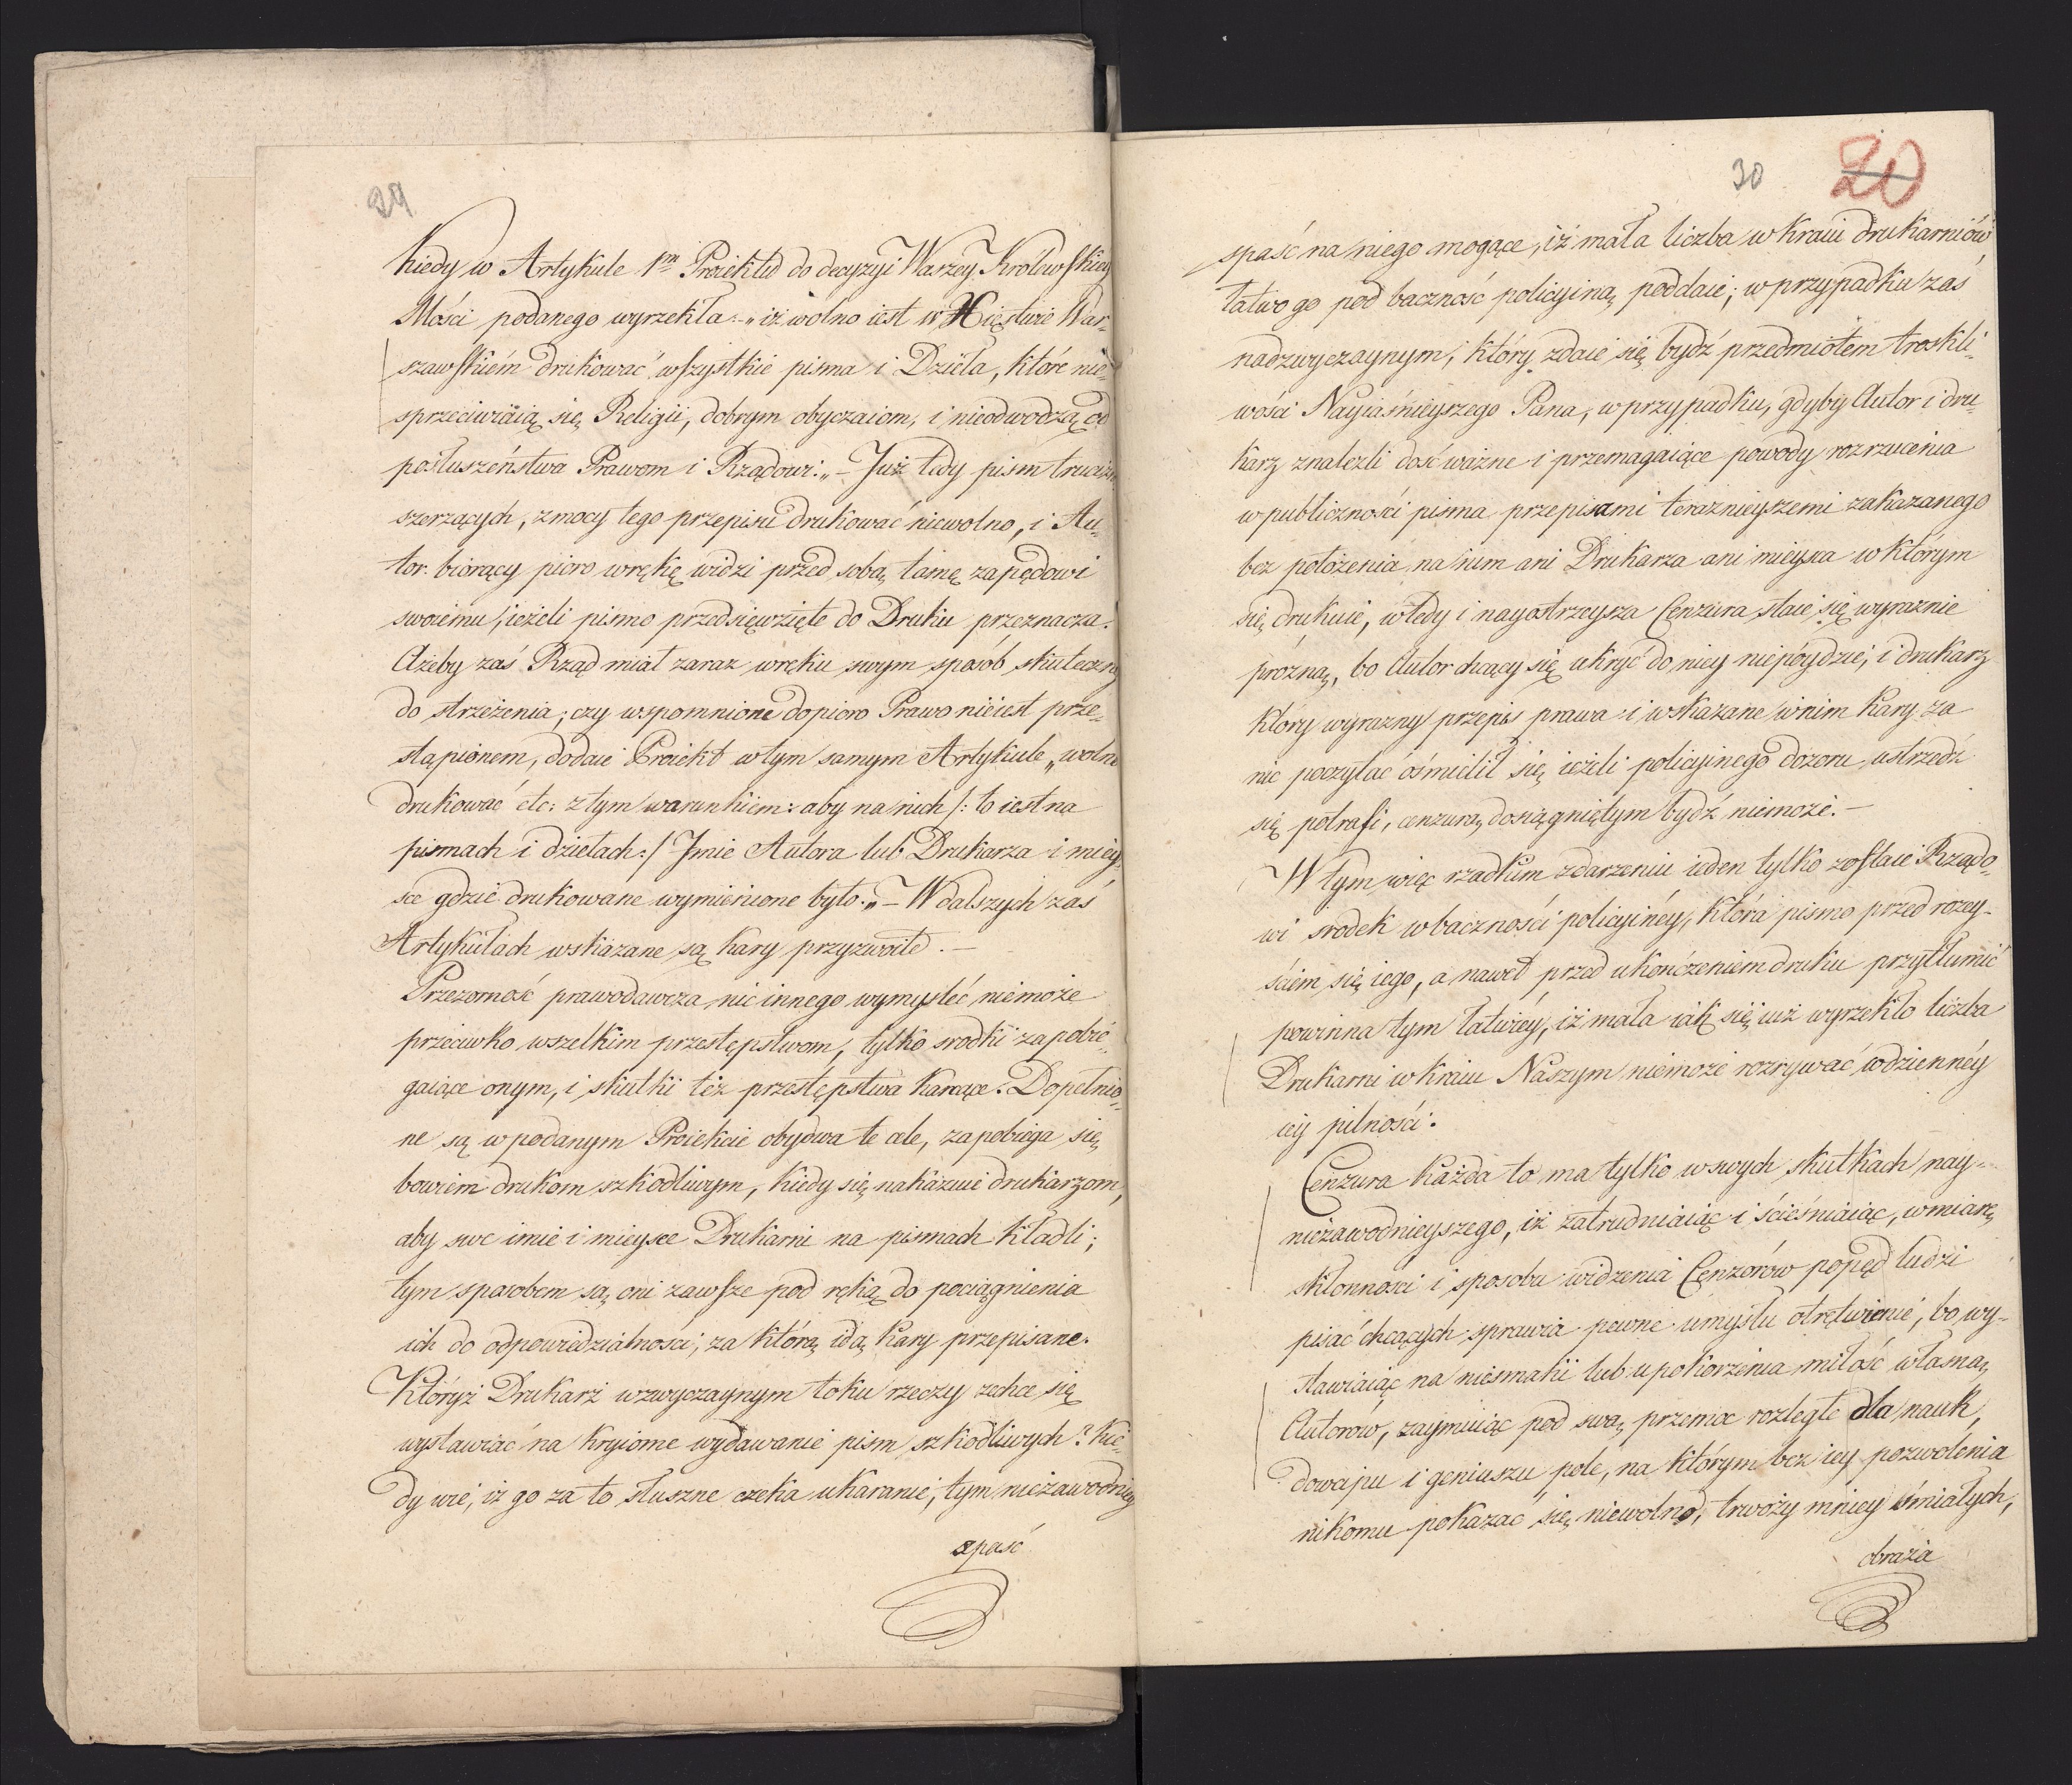 29
Kiedy w Artykule 1m Proiektu do decyzyi Waszey Krolewskiey
Mości podanego wyrzekła: „iż wolno iest w Xięstwie War-
szawskiém drukować wszystkie pisma i Dzieła, które nie
sprzeciwiaią się Religii, dobrym obyczaiom, i nieodwodzą od
posłuszeństwa Prawom i Rządowi:„ – Już tedy pism
szerzących, z mocy tego przepisu drukować niewolno, i Au-
tor biorący pioro w rękę widzi przed sobą tamę zapędowi
swoiemu, ieżeli pismo przedsięwzięte do Druku przeznacza.
Ażeby zaś Rząd miał zaraz w ręku swym sposób skuteczny
do strzeżenia; czy wspomnione dopioro Prawo nieiest prze-
stąpionem, dodaie Proiekt w tym samym Artykule „wolno
drukować etc: z tym warunkiem: aby na nich /: to iest na
pismach i dziełach:/ Imie Autora lub Drukarza i miey-
sce gdzie drukowane wymienione było.„ – W dalszych zaś
Artykułach wskazane są kary przyzwoite. –
Przezorność prawodawcza nic innego wymyśleć niemoże
przeciwko wszelkim przestępstwom, tylko srodki zapobie-
gaiące onym, i skutki téż przestępstwa karcące. Dopełnio-
ne są w podanym Proiekcie obydwa te cele, zapobiega się
bowiem drukom szkodliwym, kiedy się nakazuie drukarzom,
aby swe imie i mieysce Drukarni na pismach kładli;
tym sposobem są oni zawsze pod ręką do pociągnienia
ich do odpowiedzialności, za którą idą kary przepisane.
Któryż Drukarz w zwyczaynym toku rzeczy zechce się
wystawiać na kryiome wydawanie pism szkodliwych? Kie-
dy wie, iż go za to słuszne czeka ukaranie, tym niezawodniey
spaść
30 20
spaść na niego mogące, iż mała liczba w kraiu drukarniów
łatwo go pod baczność policyiną poddaie; w przypadku zaś
nadzwyczaynym, który zdaie się bydź przedmiotem troskli-
wości Nayiaśnieyszego Pana, w przypadku, gdyby Autor i dru-
karz znaleźli dość ważne i przemagaiące powody rozrzucenia
w publiczności pisma przepisami teraznieyszemi zakazanego
bez położenia na nim ani Drukarza ani mieysca w którym
się drukuie, wtedy i nayostrzeysza Cenzura staie się wyraznie
prózną, bo Autor chcący się ukryć do niey niepóydzie, i drukarz
który wyrazny przepis prawa i wskazane w nim kary za
nic poczytac ośmielił się ieżeli policyinego dozoru ustrzedz
się potrafi, cenzurą dosiągniętym bydź niemoże. –
W tym więc rzadkim zdarzeniu ieden tylko zostaie Rządo-
wi srodek w baczności policyinéy, która pismo przed rozey-
ściem się iego, a nawet przed ukończeniem druku przytłumić
powinna tym łatwiéy, iż mała iak się iuż wyrzekło liczba
Drukarni w kraiu Naszym niemoże rozrywać codziennéy
iey pilności.
Cenzura każda to ma tylko w swych skutkach nay-
niezawodnieyszego, iż zatrudniaiąc i ścieśniaiąc, w miarę
skłonności i sposobu widzenia Cenzorów popęd ludzi
pisać chcących sprawia pewne umysłu otrętwienie, bo wy-
stawiaiąc na niesmaki lub upokorzenia miłość własną
Autorów, zaymuiąc pod swą przemoc rozległe dla nauk,
dowcipu i geniuszu pole, na którym bez iey pozwolenia
nikomu pokazac się niewolno, trwoży mniey śmiałych,
obraża